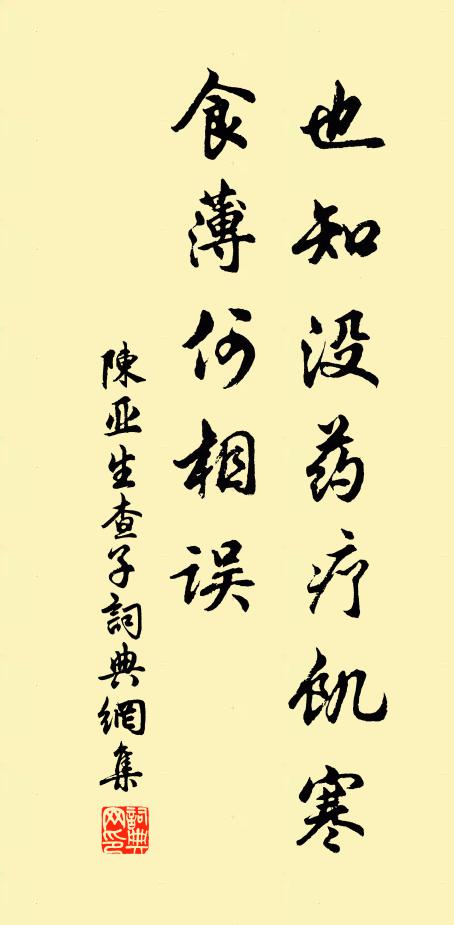 也知没药疗饥寒
食薄何相误
陳亚生查子詞典網集
詞典网印